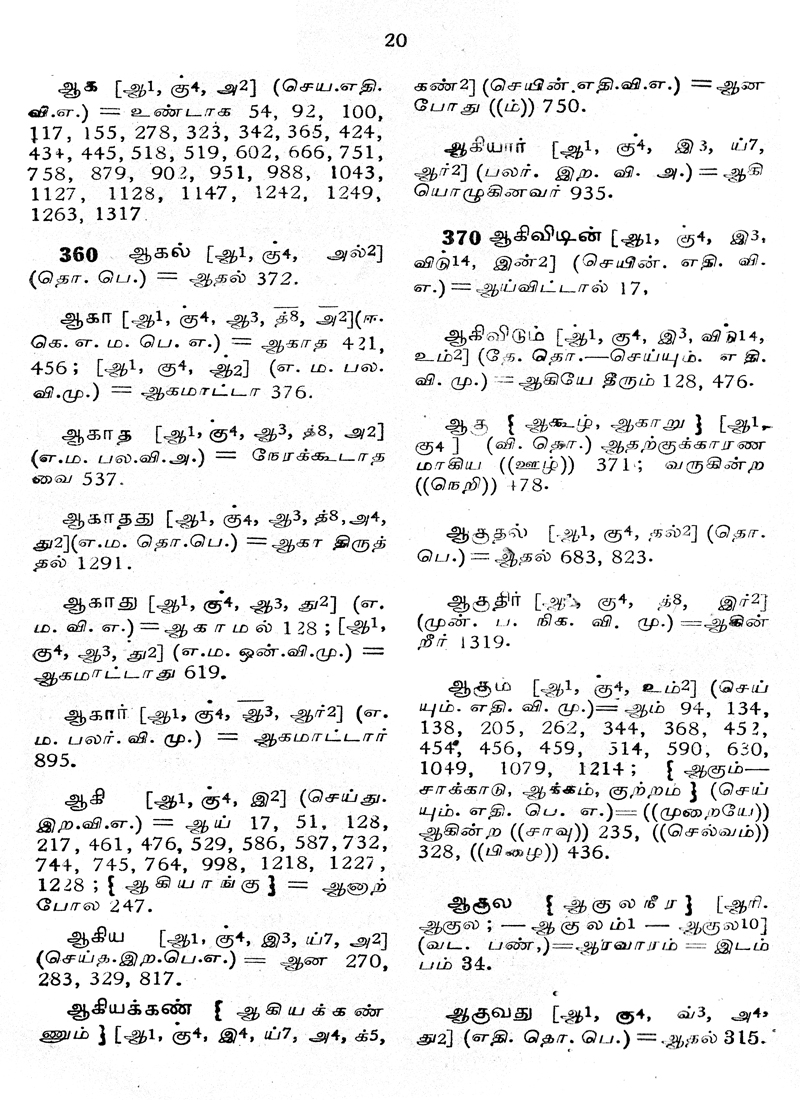 20
ஆக [ஆ1, கு4, அ2] (செய.எதி.
வி.எ.) = உண்டாக 54, 92, 100,
117, 155, 278, 323, 342, 365, 424,
434, 445, 518, 519, 602, 666, 751,
758, 879, 902, 951, 988, 1043,
1127, 1128, 1147, 1242, 1249,
1263, 1317.
360 ஆகல் [ஆ1, கு4, அல்2]
(தொ. பெ.) = ஆதல் 372.
ஆகா [ஆ1, கு4, ஆ3, த்8, அ2](ஈ.
கெ. எ. ம. பெ. எ.) = ஆகாத 421,
456; [ஆ1, கு4, ஆ2] (எ. ம. பல.
வி.மு.) = ஆகமாட்டா 376.
ஆகாத [ஆ1, கு4, ஆ3, த்8, அ2]
(எ.ம. பல.வி.அ.) = நேரக்கூடாத
வை 537.
ஆகாதது [ஆ1, கு4, ஆ3, த்8, அ4,
து2](எ.ம. தொ.பெ.) = ஆகா திருத்
தல் 1291.
ஆகாது [ஆ1, கு4, ஆ3, து2] (எ.
ம. வி. எ.) = ஆகாமல் 128; [ஆ1,
கு4, ஆ3, து2] (எ.ம. ஒன்.வி.மு.) =
ஆகமாட்டாது 619.
ஆகார் [ஆ1, கு4, ஆ3, ஆர்2] (எ.
ம. பலர். வி. மு.) = ஆகமாட்டார்
895.
ஆகி [ஆ1, கு4, இ2] (செய்து.
இற.வி.எ.) = ஆய் 17, 51, 128,
217, 461, 476, 529, 586, 587, 732,
744, 745, 764, 998, 1218, 1227,
1228; { ஆகியாங்கு } = ஆனாற்
போல 247.
ஆகிய [ஆ1, கு4, இ3, ய்7, அ2]
(செய்த.இற.பெ.எ.) = ஆன 270,
283, 329, 817.
ஆகியக்கண் { ஆகியக்கண்
ணும் } [ஆ1, கு4, இ4, ய்7, அ4, க்5,
கண்2] (செயின்.எதி.வி.எ.) = ஆன
போது ((ம்)) 750.
ஆகியார் [ஆ1, கு4, இ3, ய்7,
ஆர்2] (பலர். இற. வி. அ.) = ஆகி
யொழுகினவர் 935.
370 ஆகிவிடின் [ஆ1, கு4, இ3,
விடு14, இன்2] (செயின். எதி. வி.
எ.) = ஆய்விட்டால் 17,
ஆகிவிடும் [ஆ1, கு4, இ3, விடு14,
உம்2] (தே. தொ.—செய்யும். எதி.
வி. மு.) = ஆகியே தீரும் 128, 476.
ஆகு { ஆகூழ், ஆகாறு } [ஆ1,
கு4 ] (வி. தொ.) ஆதற்குக்காரண
மாகிய ((ஊழ்)) 371; வருகின்ற
((நெறி)) 478.
ஆகுதல் [ஆ1, கு4, தல்2] (தொ.
பெ.) = ஆதல் 683, 823.
ஆகுதிர் [ஆ1, கு4, த்8, இர்2]
(முன். ப. நிக. வி. மு.) = ஆகின்
றீர் 1319.
ஆகும் [ஆ1, கு4, உம்2] (செய்
யும். எதி. வி. மு.) = ஆம் 94, 134,
138, 205, 262, 344, 368, 452,
454, 456, 459, 514, 590, 630,
1049, 1079, 1214; { ஆகும்—
சாக்காடு, ஆக்கம், குற்றம் } (செய்
யும். எதி. பெ. எ.) = ((முறையே))
ஆகின்ற ((சாவு)) 235, ((செல்வம்))
328, ((பிழை)) 436.
ஆகுல { ஆகுலநீர } [ஆரி.
ஆகுல; — ஆகுலம்1 — ஆகுல10]
(வட. பண்,) = ஆரவாரம் = இடம்
பம் 34.
ஆகுவது [ஆ1, கு4, வ்3, அ4,
து2] (எதி. தொ. பெ.) = ஆதல் 315.